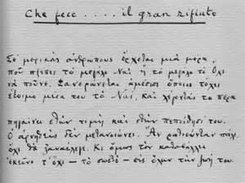 Che fece .... il gran rifiuto
Σὲ μερικοὺς ἀνθρώπους ἔρχεται μιὰ μέρα
ποὺ πρέπει τὸ μεγάλο Ναὶ ἢ τὸ μεγάλο τὸ Ὄχι
νὰ ποῦνε. Φανερώνεται ἀμέσως ὅποιος τὄχει
ἕτοιμο μέσα του τὸ Ναί, καὶ λέγοντάς το πέρα
πηγαίνει στὴν τιμὴ καὶ στὴν πεποίθησί του.
Ὁ ἀρνηθεὶς δὲν μετανοιώνει. Ἂν ρωτιούνταν πάλι,
ὄχι θὰ ξαναέλεγε. Κι ὅμως τὸν καταβάλλει
ἐκεῖνο τ' ὄχι — τὸ σωστὸ — εἰς ὅλην τὴν ζωή του.